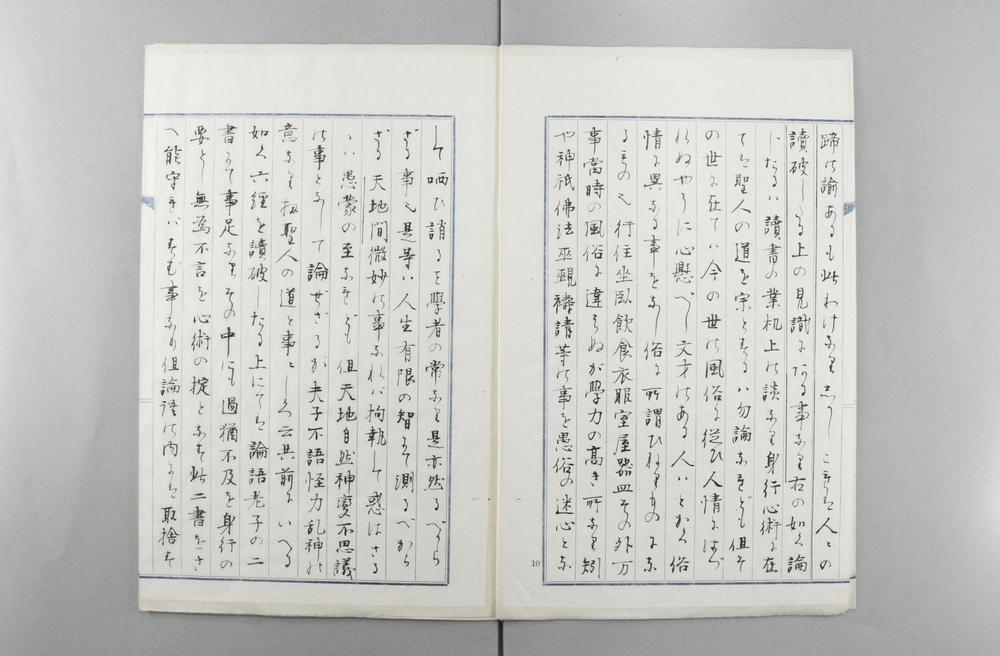 蹄の諭あるも此わけなり然しこゝは人々の
讀破したる上の見識にある事なり右の如く論
じたるハ讀書の業机上の談なり身行心術に在
ては聖人の道を宗とするハ勿論なれども但そ
の世に在てハ今の世の風俗に従ひ人情にはづ
れぬやうに心懸べし文才のある人ハとかく俗
情に異なる事をなし俗に所謂ひねりものにな
るもの也行住坐臥飲食衣服室屋器皿その外万
事當時の風俗に違はぬが學力の高き所なり矧
や神祇佛法巫覡祷請等の事を愚俗の迷心とな
10
して哂ひ誚るを學者の常なり是亦然るべから
ざる事也是等ハ人生有限の智にて測るべから
ざる天地間微妙の事なれバ拘執して惑はざる
ハ愚蒙の至なれども但天地自然神變不思議
の事として論ぜざるが夫子不語怪力乱神の
意なり扨聖人の道と事々しく云共前にいへる
如く六經を讀破したる上にては論語老子の二
書にて事足なりその中にも過猶不及を身行の
要とし無為不言を心術の掟となす此二書をさ
へ能守れバすむ事なり但論語の内にも取捨す